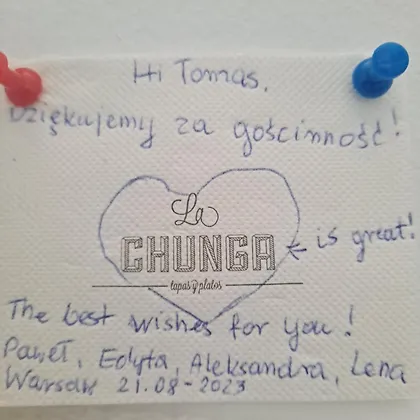 Hi Tomas,
Dziękujemy za gościnność!
La
CHUNGA ← is great!
tapas y platos
The best wishes for you!
Paweł, Edyta, Aleksandra, Lena
Warsaw 21.08-2023